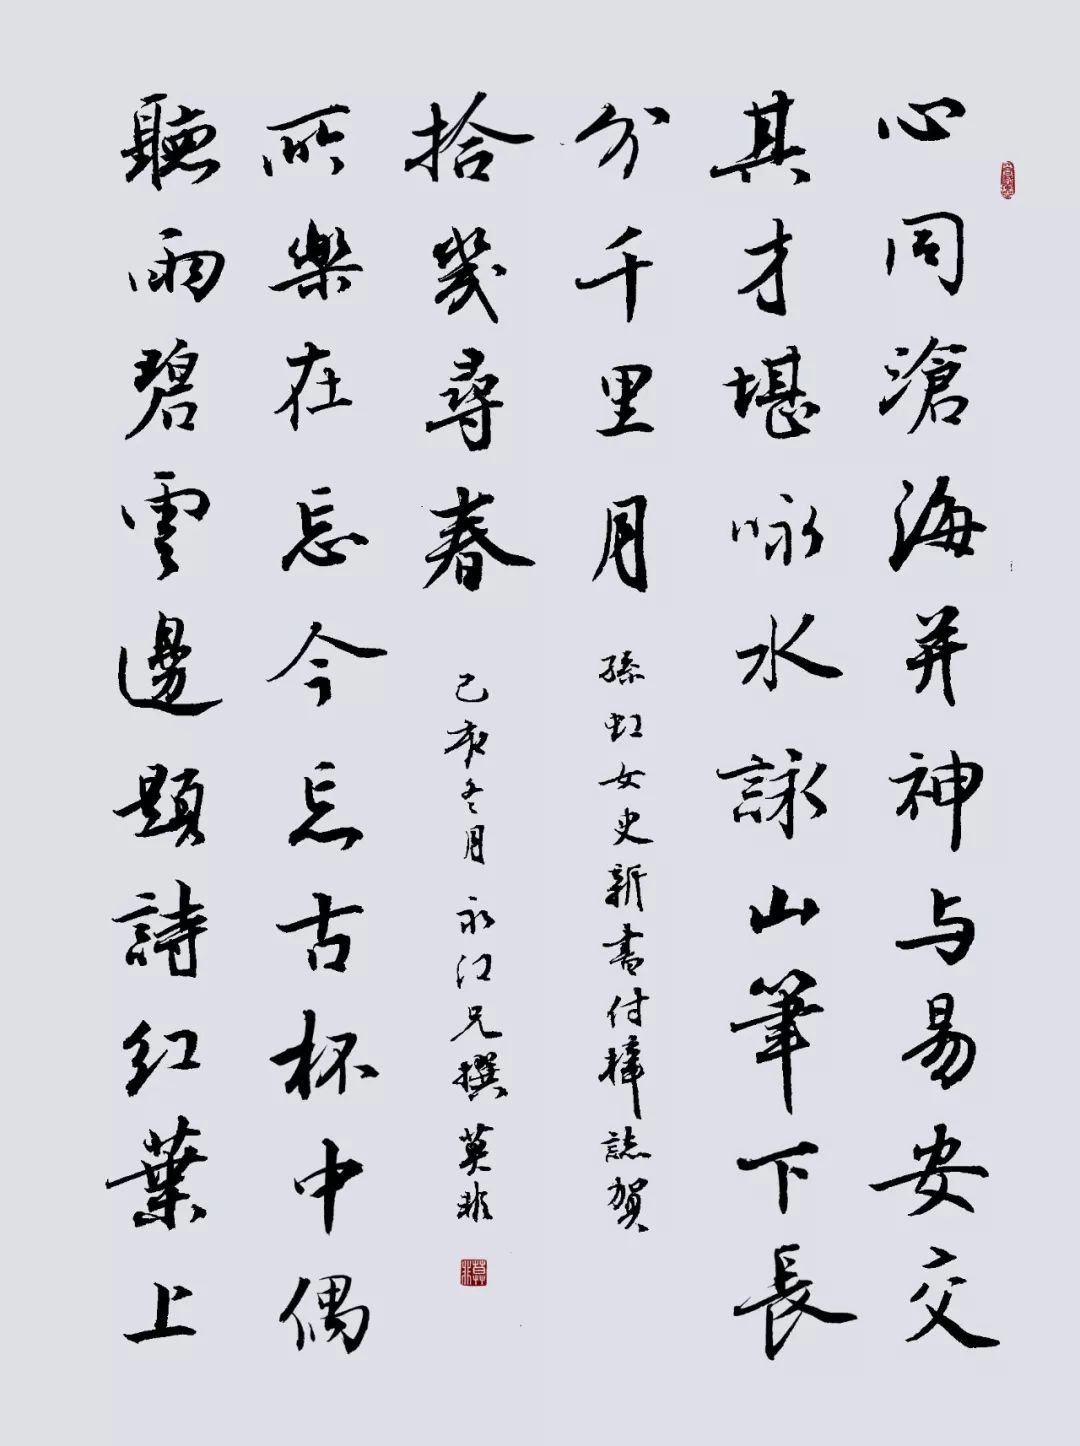 心同滄海并神与易安交
其才堪咏水詠山筆下長
分千里月
孫虹女史新書付梓誌賀
聽雨碧雲邊題詩红葉上
所樂在忘今忘古杯中偶
拾幾尋春
己亥冬月 永江兄撰 莫非
莫非